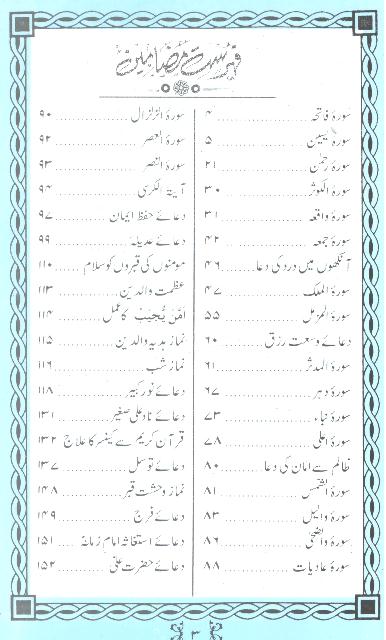 فہرست مضامین
سورۂ فاتحہ ۴
سورۂ یٰسین ۵
سورۂ رحمٰن ۲۱
سورۂ الکوثر ۳۰
سورۂ واقعہ ۳۱
سورۂ جمعہ ۴۲
آنکھوں میں درد کی دعا ۴۶
سورۂ الملک ۴۷
سورۂ المزمل ۵۵
دعائے وسعت رزق ۶۰
سورۂ المدثر ۶۱
سورۂ دہر ۶۷
سورۂ نباء ۷۳
سورۂ اعلٰی ۷۸
ظالم سے امان کی دعا ۸۰
سورۂ الشمس ۸۱
سورۂ والیل ۸۳
سورۂ واضحٰی ۸۶
سورۂ عادیات ۸۸
سورۂ الزلزال ۹۰
سورۂ العصر ۹۲
سورۂ النصر ۹۳
آیۃ الکرسی ۹۴
دعائے حفظ ایمان ۹۷
دعائے عدیلہ ۹۹
مومنوں کی قبروں کو سلام ۱۱۰
عظمت والدین ۱۱۳
اَمَّنْ یُّجِیْبُ کا عمل ۱۱۴
نماز ہدیہ والدین ۱۱۵
نماز شب ۱۱۶
دعائے نور کبیر ۱۱۸
دعائے ناد علی صغیر ۱۳۱
قرآن کریم سے کینسر کا علاج ۱۳۲
دعائے توسل ۱۳۷
نماز وحشت قبر ۱۴۸
دعائے فرج ۱۴۹
دعائے استغاثہ امام زمانہؑ ۱۵۱
دعائے حضرت علیؑ ۱۵۲
۳